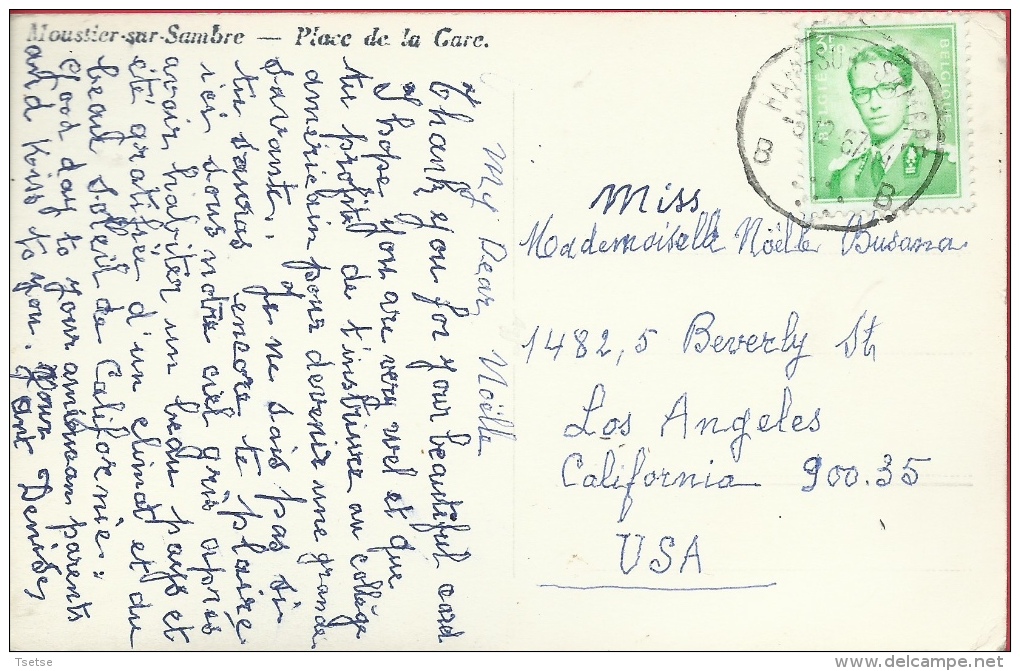 Moustier-sur-Sambre — Place de la Gare.
My Dear Noëlle
Thank you for your beautiful card
I hope you are very wel et que
tu profit de t'instruire au collège
américain pour devenir une grande
savante. Je ne sais pas si
tu sauras encore te plaire
ici sous notre ciel gris après
avoir habiter un beau pays et
été gratifiée d'un climat et du
beau soleil de Californie.
Good day to your american parents
and Kiss to you. Your
Denise,
Miss
Mademoiselle Noëlle Busana
1482,5 Beverly St
Los Angeles
California 900.35
USA
3F
BELGIQUE
BELGIË
B
B
67
Tsetse
delcampe.net